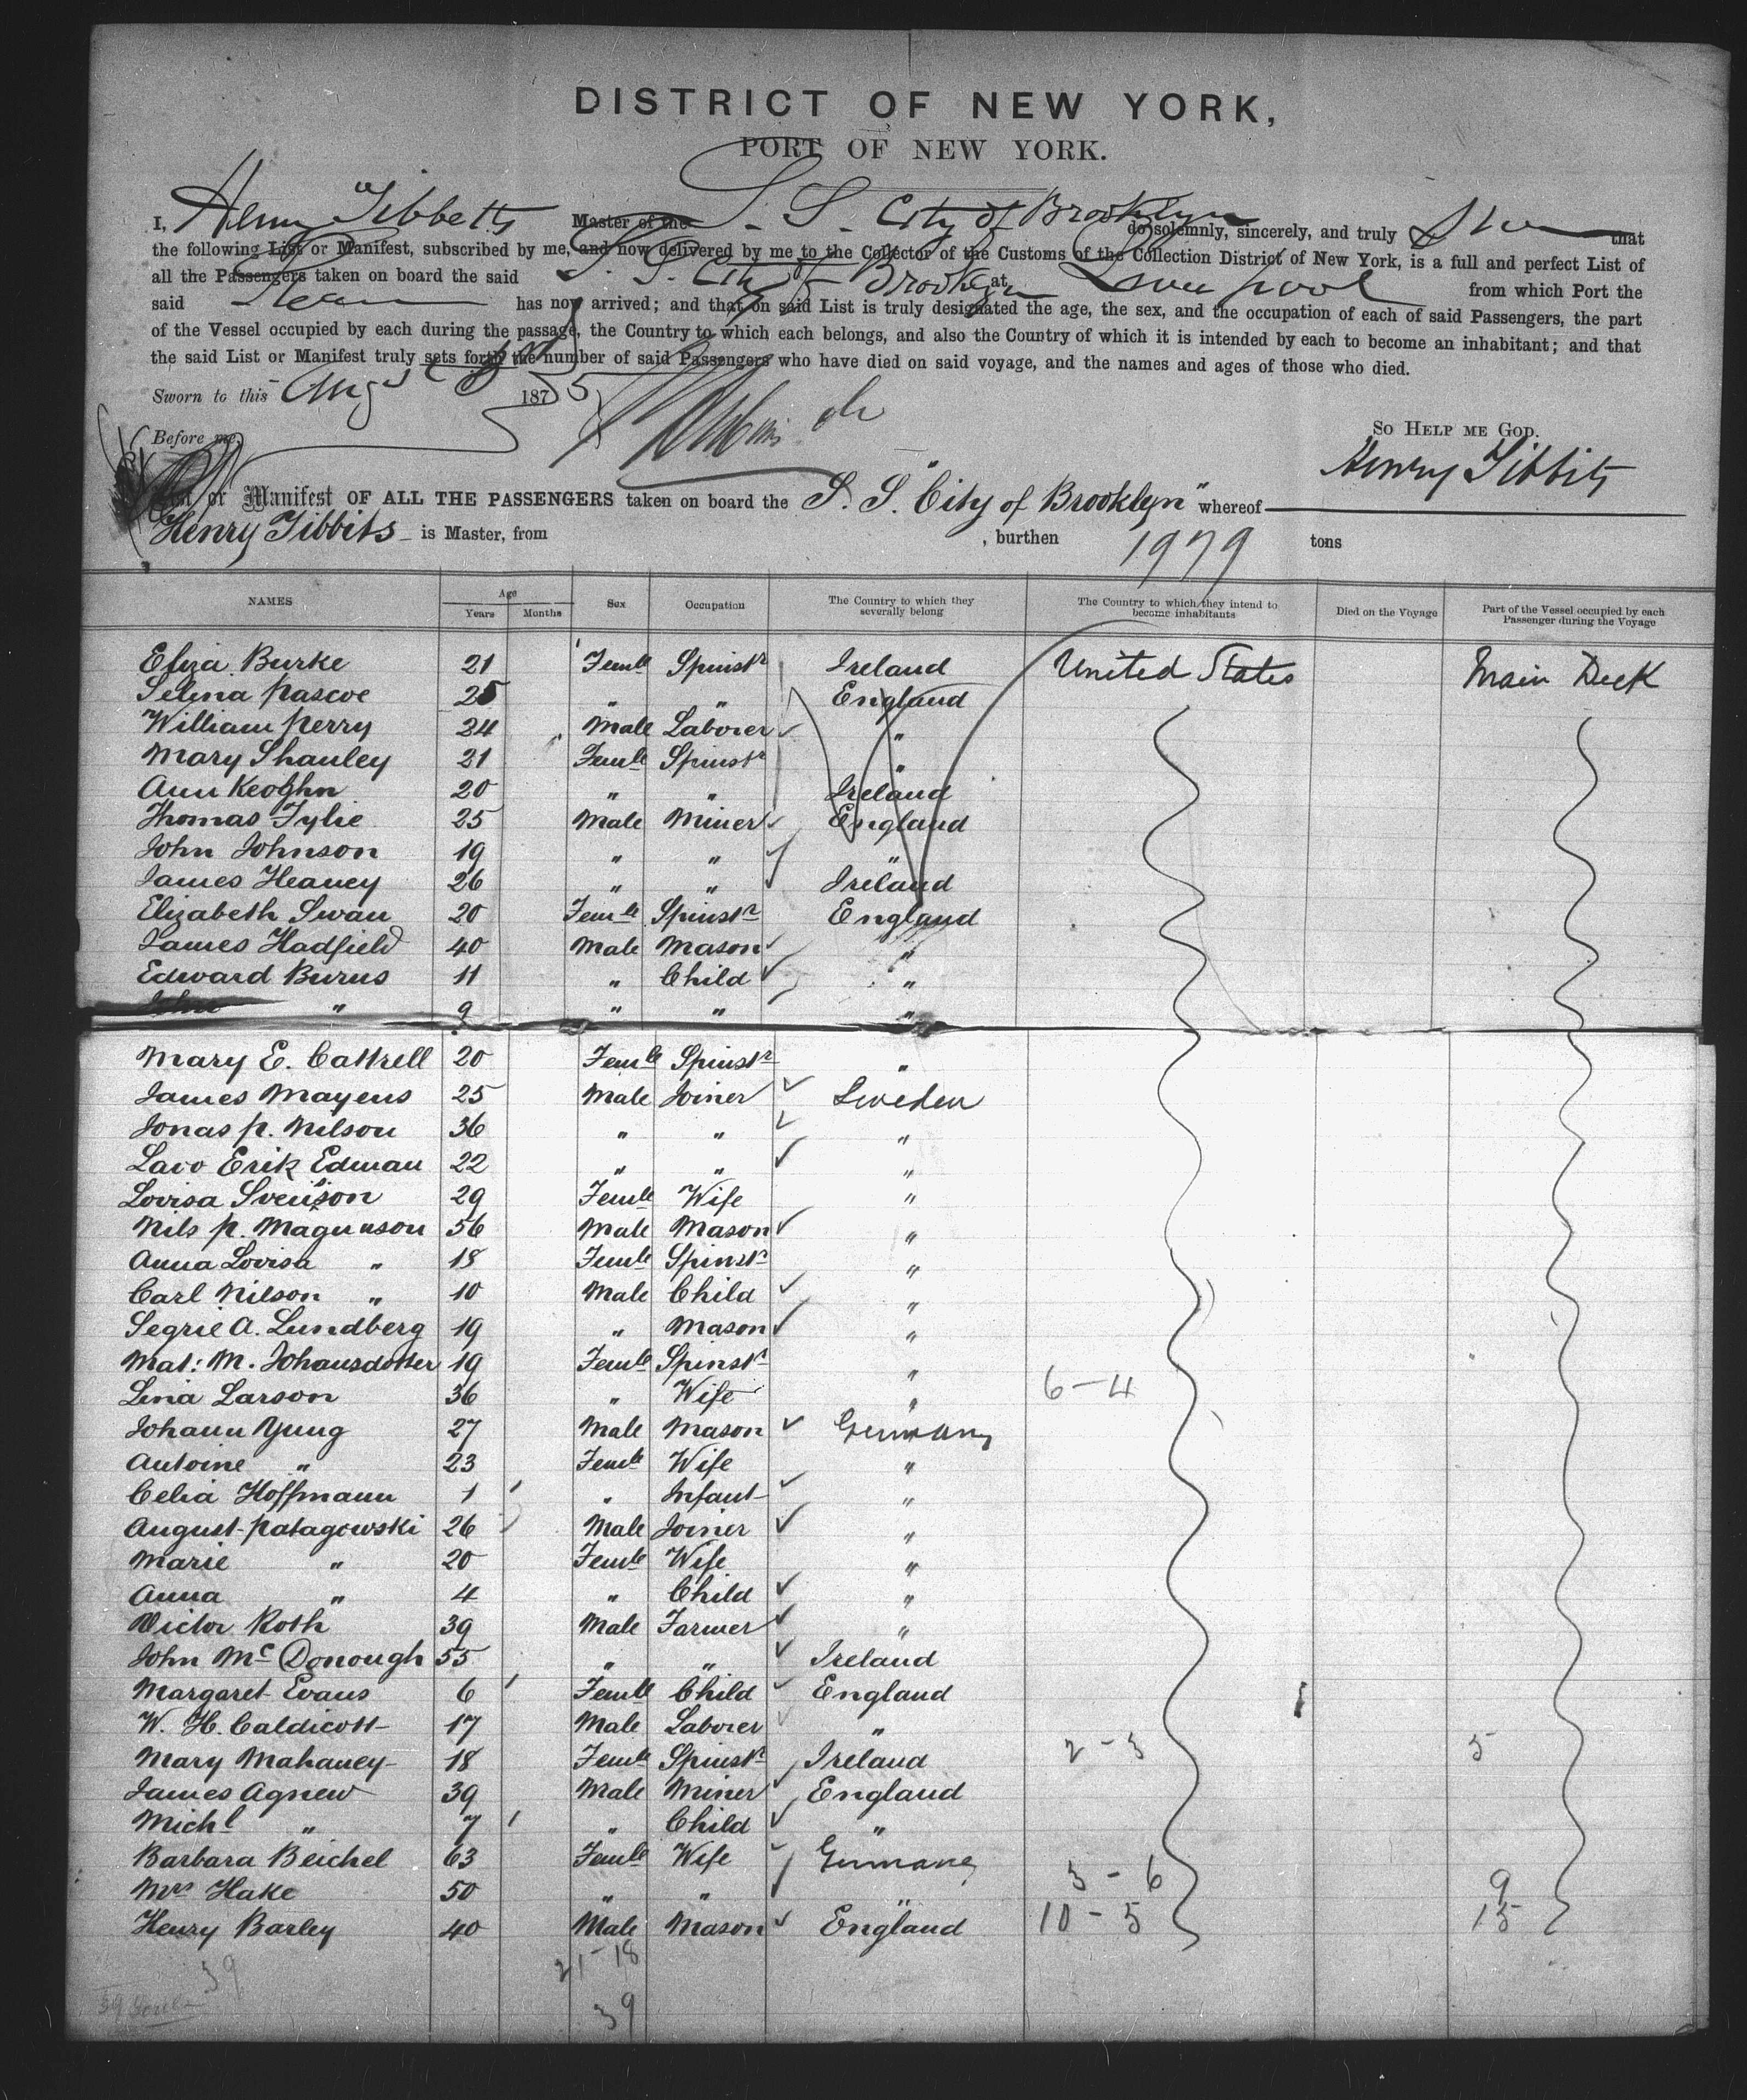 DISTRICT OF NEW YORK,
PORT OF NEW YORK.
I, Henry Tibbetts Master of the S. S. City of Brooklyn do solemnly, sincerely, and truly that
the following List or Manifest, subscribed by me, and now delivered by me to the Collector of the Customs of the Collection District of New York, is a full and perfect List of
all the Passengers taken on board the said S. S. City of Brooklyn at Liverpool from which Port the
said has now arrived; and that on said List is truly designated the age, the sex, and the occupation of each of said Passengers, the part
of the Vessel occupied by each during the passage, the Country to which each belongs, and also the Country of which it is intended by each to become an inhabitant; and that
the said List or Manifest truly sets forth the number of said Passengers who have died on said voyage, and the names and ages of those who died.
Sworn to this Augs 1875
So Help me God.
Before me,
Henry Tibbits
List or Manifest OF ALL THE PASSENGERS taken on board the S. S. "City of Brooklyn" whereof
Henry Tibbits is Master, from , burthen 1979 tons
NAMES Age Years Months Sex Occupation The Country to which they severally belong The Country to which they intend to become inhabitants Died on the Voyage Part of the Vessel occupied by each Passenger during the Voyage
Eliza Burke 21 Femle Spinstr Ireland United States Main Deck
Selina Pascoe 25 " " England
William Perry 24 Male Laborer "
Mary Shanley 21 Femle Spinstr "
Ann Keoghn 20 " " Ireland
Thomas Fylie 25 Male Miner England
John Johnson 19 " " "
James Heaney 26 " " Ireland
Elizabeth Swan 20 Femle Spinstr England
James Hadfield 40 Male Mason "
Edward Burns 11 " Child "
John " 9 " " "
Mary E. Cattrell 20 Femle Spinstr "
James Mayens 25 Male Joiner Sweden
Jonas P. Nilson 36 " " "
Lavo Erik Edman 22 " " "
Lovisa Svenson 29 Femle Wife "
Nils P. Magunson 56 Male Mason "
Anna Lovisa " 18 Femle Spinstr "
Carl Nilson " 10 Male Child "
Segrie A. Lundberg 19 " Mason "
Mat: M. Johansdotter 19 Femle Spinstr "
Lina Larson 36 " Wife " 6-4
Johann Yung 27 Male Mason Germany
Antoine " 23 Femle Wife "
Celia Hoffmann 1 " Infant "
August Patagowski 26 Male Joiner "
Marie " 20 Femle Wife "
Anna " 4 " Child "
Victor Roth 39 Male Farmer "
John McDonough 55 " " Ireland
Margaret Evans 6 Femle Child England
W. H. Caldicott 17 Male Laborer "
Mary Mahaney 18 Femle Spinstr Ireland 2-3 5
James Agnew 39 Male Miner England
Michl " 7 " Child "
Barbara Beichel 63 Femle Wife Germany 3-6 9
Mrs Hake 50 " " "
Henry Barley 40 Male Mason England 10-5 15
21-18
39
39